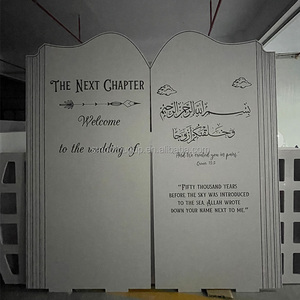 THE NEXT CHAPTER
Welcome
to the wedding of
بسم الله الرحمن الرحيم
وخلقنكم أزوجا
And We created you in pairs
"FIFTY THOUSAND YEARS
BEFORE THE SKY WAS INTRODUCED
TO THE SEA, ALLAH WROTE
DOWN YOUR NAME NEXT TO ME."